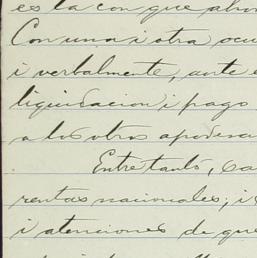 es la con que abon
Con una i otra ocu
i verbalmente, ante
liquidacion i pago
a los otros apodera
Entre tanto, ca
rentas nacionales; i
i atenciones de que